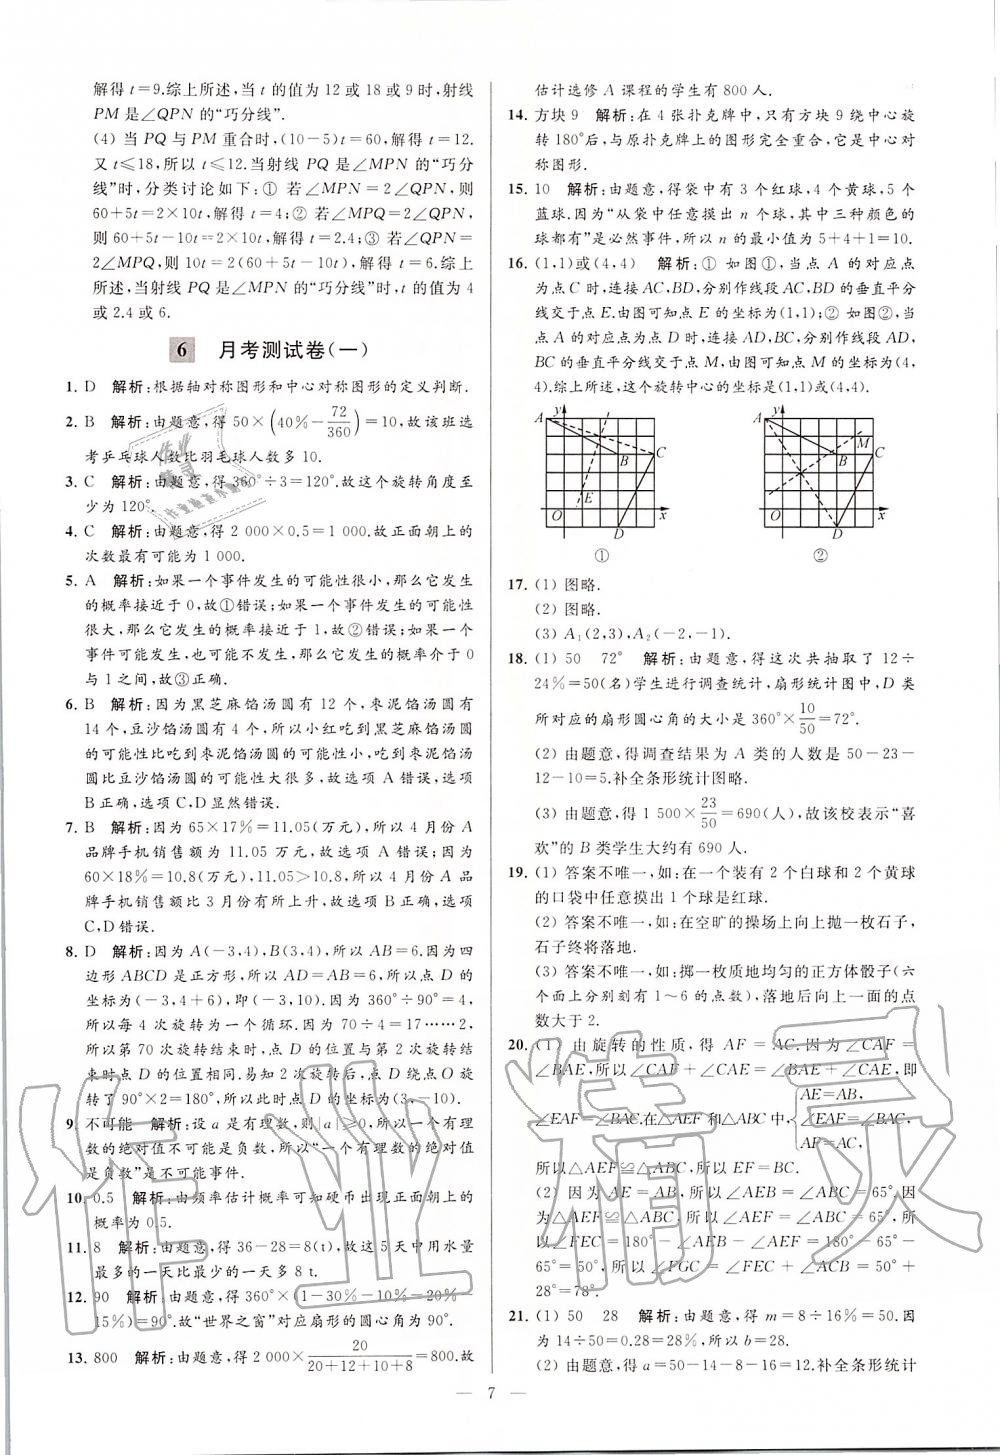 解得 t=9.综上所述,当 t 的值为 12 或 18 或 9 时,射线
PM 是∠QPN 的“巧分线”.
(4) 当 PQ 与 PM 重合时,(10-5)t=60,解得 t=12.
又 t≤18,所以 t≤12.当射线 PQ 是∠MPN 的“巧分
线”时,分类讨论如下:① 若∠MPN=2∠QPN,则
60+5t=2×10t,解得 t=4;② 若∠MPQ=2∠QPN,
则 60+5t-10t=2×10t,解得 t=2.4;③ 若∠QPN=
2∠MPQ,则 10t=2(60+5t-10t),解得 t=6.综上
所述,当射线 PQ 是∠MPN 的“巧分线”时,t 的值为 4
或 2.4 或 6.
6 月考测试卷(一)
1. D 解析:根据轴对称图形和中心对称图形的定义判断.
2. B 解析:由题意,得 50×(40%-72/360)=10,故该班选
考乒乓球人数比羽毛球人数多 10.
3. C 解析:由题意,得 360°÷3=120°.故这个旋转角度至
少为 120°.
4. C 解析:由题意,得 2 000×0.5=1 000.故正面朝上的
次数最有可能为 1 000.
5. A 解析:如果一个事件发生的可能性很小,那么它发生
的概率接近于 0,故①错误;如果一个事件发生的可能性
很大,那么它发生的概率接近于 1,故②错误;如果一个
事件可能发生,也可能不发生,那么它发生的概率介于 0
与 1 之间,故③正确.
6. B 解析:因为黑芝麻馅汤圆有 12 个,枣泥馅汤圆有
14 个,豆沙馅汤圆有 4 个,所以小红吃到黑芝麻馅汤圆
的可能性比吃到枣泥馅汤圆的可能性小,吃到枣泥馅汤
圆比豆沙馅汤圆的可能性大很多,故选项 A 错误,选项
B 正确,选项 C,D 显然错误.
7. B 解析:因为 65×17%=11.05(万元),所以 4 月份 A
品牌手机销售额为 11.05 万元,故选项 A 错误;因为
60×18%=10.8(万元),11.05>10.8,所以 4 月份 A 品
牌手机销售额比 3 月份有所上升,故选项 B 正确,选项
C,D 错误.
8. D 解析:因为 A(-3,4),B(3,4),所以 AB=6.因为四
边形 ABCD 是正方形,所以 AD=AB=6,所以点 D 的
坐标为(-3,4+6),即(-3,10).因为 360°÷90°=4,
所以每 4 次旋转为一个循环.因为 70÷4=17……2,
所以第 70 次旋转结束时,点 D 的位置与第 2 次旋转结
束时点 D 的位置相同.易知 2 次旋转后,点 D 绕点 O 旋
转了 90°×2=180°,所以此时点 D 的坐标为(3,-10).
9. 不可能 解析:设 a 是有理数,则|a|≥0,所以“一个有理
数的绝对值不可能是负数,故“一个有理数的绝对值
是负数”是不可能事件.
10. 0.5 解析:由频率估计概率可知硬币出现正面朝上的
概率为 0.5.
11. 8 解析:由题意,得 36-28=8(t),故这 5 天中用水量
最多的一天比最少的一天多 8 t.
12. 90 解析:由题意,得 360°×(1-30%-10%-20%-
15%)=90°.故“世界之窗”对应扇形的圆心角为 90°.
13. 800 解析:由题意,得 2 000×20/(20+12+10+8)=800.故
估计选修 A 课程的学生有 800 人.
14. 方块 9 解析:在 4 张扑克牌中,只有方块 9 绕中心旋
转 180°后,与原扑克牌上的图形完全重合,它是中心对
称图形.
15. 10 解析:由题意,得袋中有 3 个红球,4 个黄球,5 个
蓝球.因为“从袋中任意摸出 n 个球,其中三种颜色的
球都有”是必然事件,所以 n 的最小值为 5+4+1=10.
16. (1,1)或(4,4) 解析:① 如图①,当点 A 的对应点
为点 C 时,连接 AC,BD,分别作线段 AC,BD 的垂直平分
线交于点 E.由图可知点 E 的坐标为(1,1);② 如图②,当
点 A 的对应点为点 D 时,连接 AD,BC,分别作线段 AD,
BC 的垂直平分线交于点 M.由图可知点 M 的坐标为(4,
4).综上所述,这个旋转中心的坐标是(1,1)或(4,4).
A y B C E O D x ①
A y M B C O D x ②
17. (1) 图略.
(2) 图略.
(3) A₁(2,3),A₂(-2,-1).
18. (1) 50 72° 解析:由题意,得这次共抽取了 12÷
24%=50(名)学生进行调查统计,扇形统计图中,D 类
所对应的扇形圆心角的大小是 360°×10/50=72°.
(2) 由题意,得调查结果为 A 类的人数是 50-23-
12-10=5.补全条形统计图略.
(3) 由题意,估计得 1 500×23/50=690(人),故该校表示“喜
欢”的 B 类学生大约有 690 人.
19. (1) 答案不唯一,如:在一个装有 2 个白球和 2 个黄球
的口袋中任意摸出 1 个球是红球.
(2) 答案不唯一,如:在空旷的操场上向上抛一枚石子,
石子终将落地.
(3) 答案不唯一,如:掷一枚质地均匀的正方体骰子(六
个面上分别刻有 1～6 的点数),落地后向上一面的点
数大于 2.
20. (1) 由旋转的性质,得 AF=AC.因为∠CAF=
∠BAE,所以∠CAF+∠CAE=∠BAE+∠CAE,即
∠EAF=∠BAC.在△AEF 和△ABC 中,{AE=AB, ∠EAF=∠BAC, AF=AC,
所以△AEF≌△ABC,所以 EF=BC.
(2) 因为 AE=AB,所以∠AEB=∠ABC=65°.因
为△AEF≌△ABC,所以∠AEF=∠ABC=65°,所
以∠FEC=180°-∠AEB-∠AEF=180°-65°-
65°=50°,所以∠FGC=∠FEC+∠ACB=50°+
28°=78°.
21. (1) 50 28 解析:由题意,得 m=8÷16%=50.因
为 14÷50=0.28=28%,所以 b=28.
(2) 由题意,得 a=50-14-8-16=12.补全条形统计
— 7 —
作业精灵